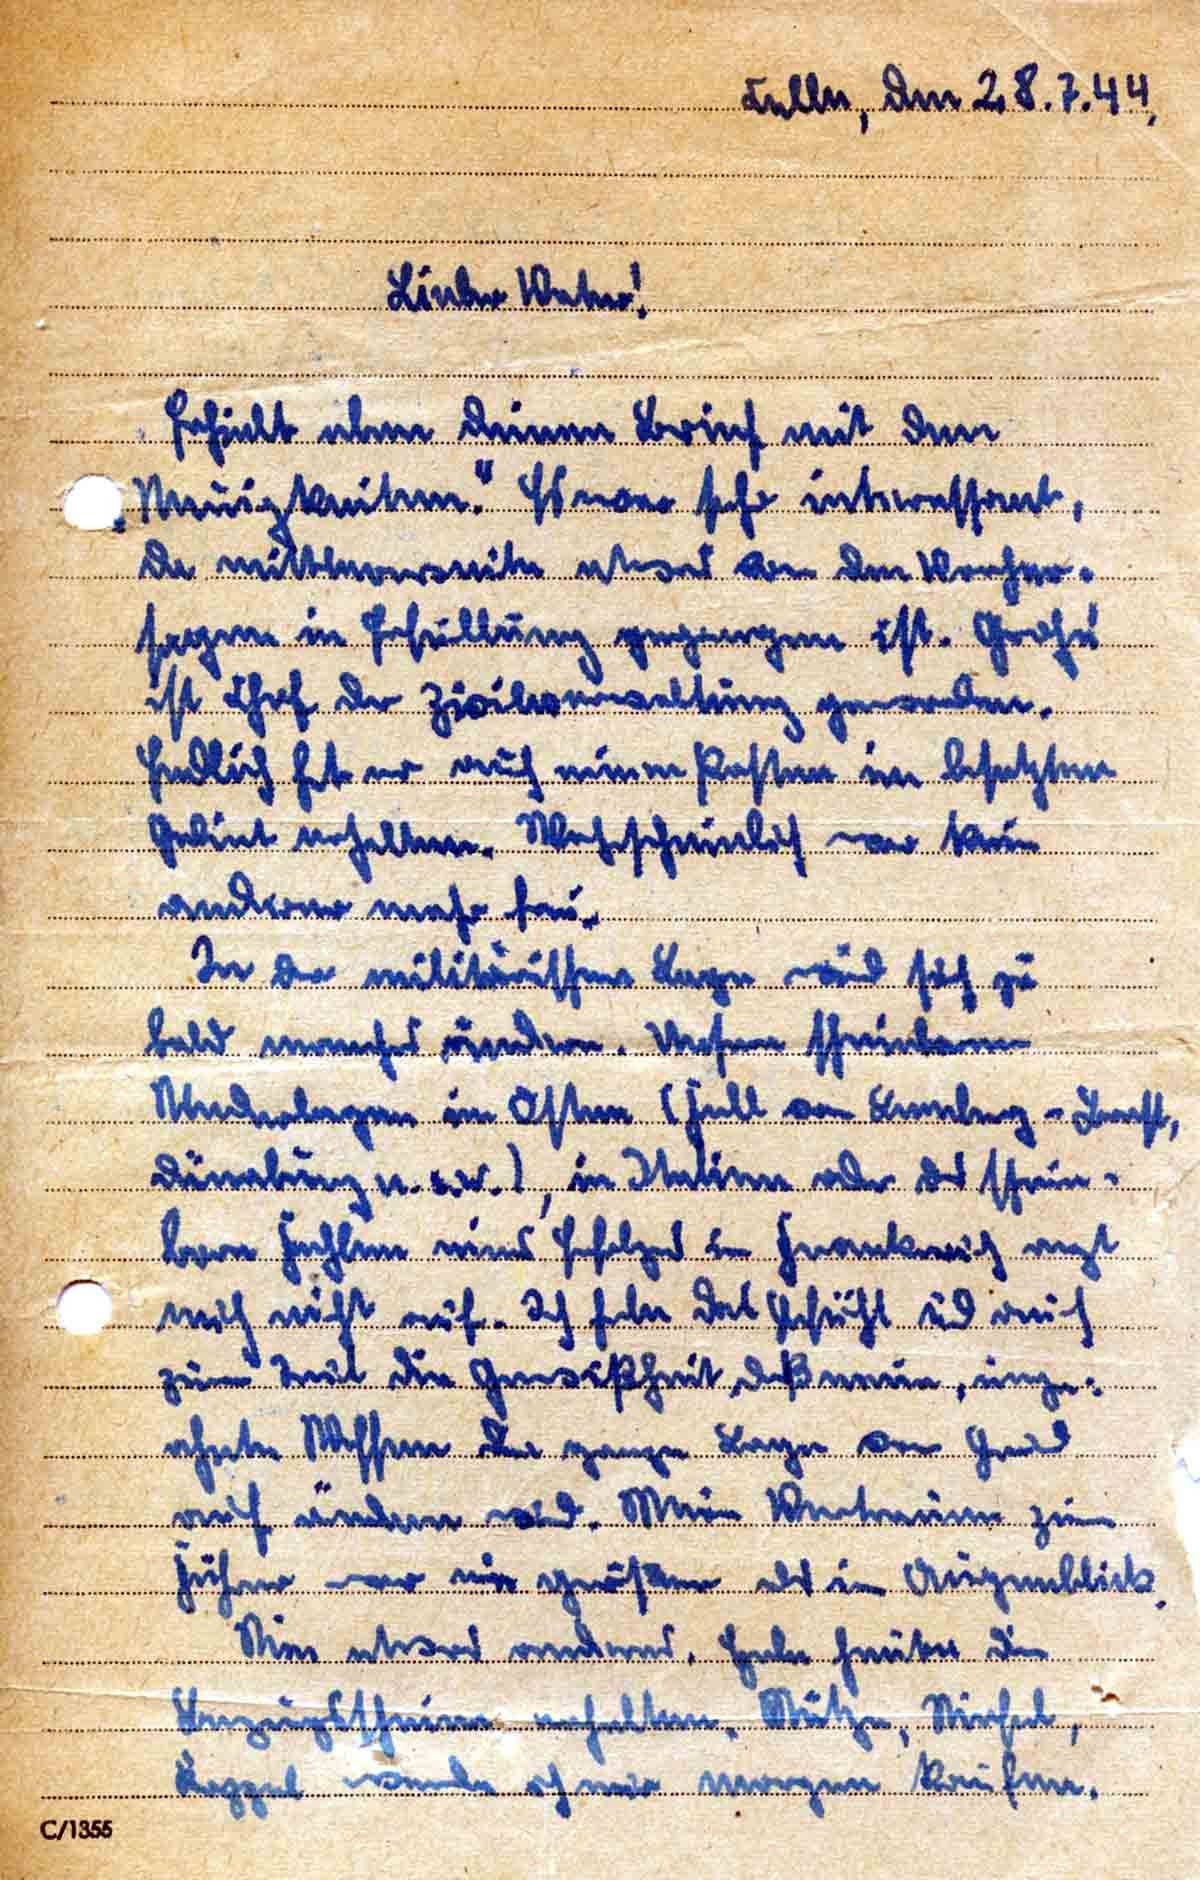 Celle, den 28.7.44.
Lieber Vater!
Erhielt eben Deinen Brief mit den
„Neuigkeiten." Es war sehr interessant,
da mittlerweile etwas von den Vorher-
sagen in Erfüllung gegangen ist. Grohé
ist Chef der Zivilverwaltung geworden.
Endlich hat er auch einen Posten im besetzten
Gebiet erhalten. Wahrscheinlich war kein
anderer mehr frei.
In der militärischen Lage wird sich ja
bald manches ändern. Unsere scheinbaren
Niederlagen im Osten (Fall von Lemberg - Brest,
Dünaburg u.s.w.), in Italien oder das schein-
bare Fehlen eines Erfolges in Frankreich regt
mich nicht auf. Ich habe das Gefühl und auch
zum Teil die Gewißheit, daß neue, unge-
ahnte Waffen die ganze Lage von Grund
auf ändern wird. Mein Vertrauen zum
Führer war nie größer als im Augenblick.
Nun etwas anderes. Habe heute die
Bezugsscheine erhalten. Mütze, Stiefel,
Koppel werde ich mir morgen kaufen.
C/1355